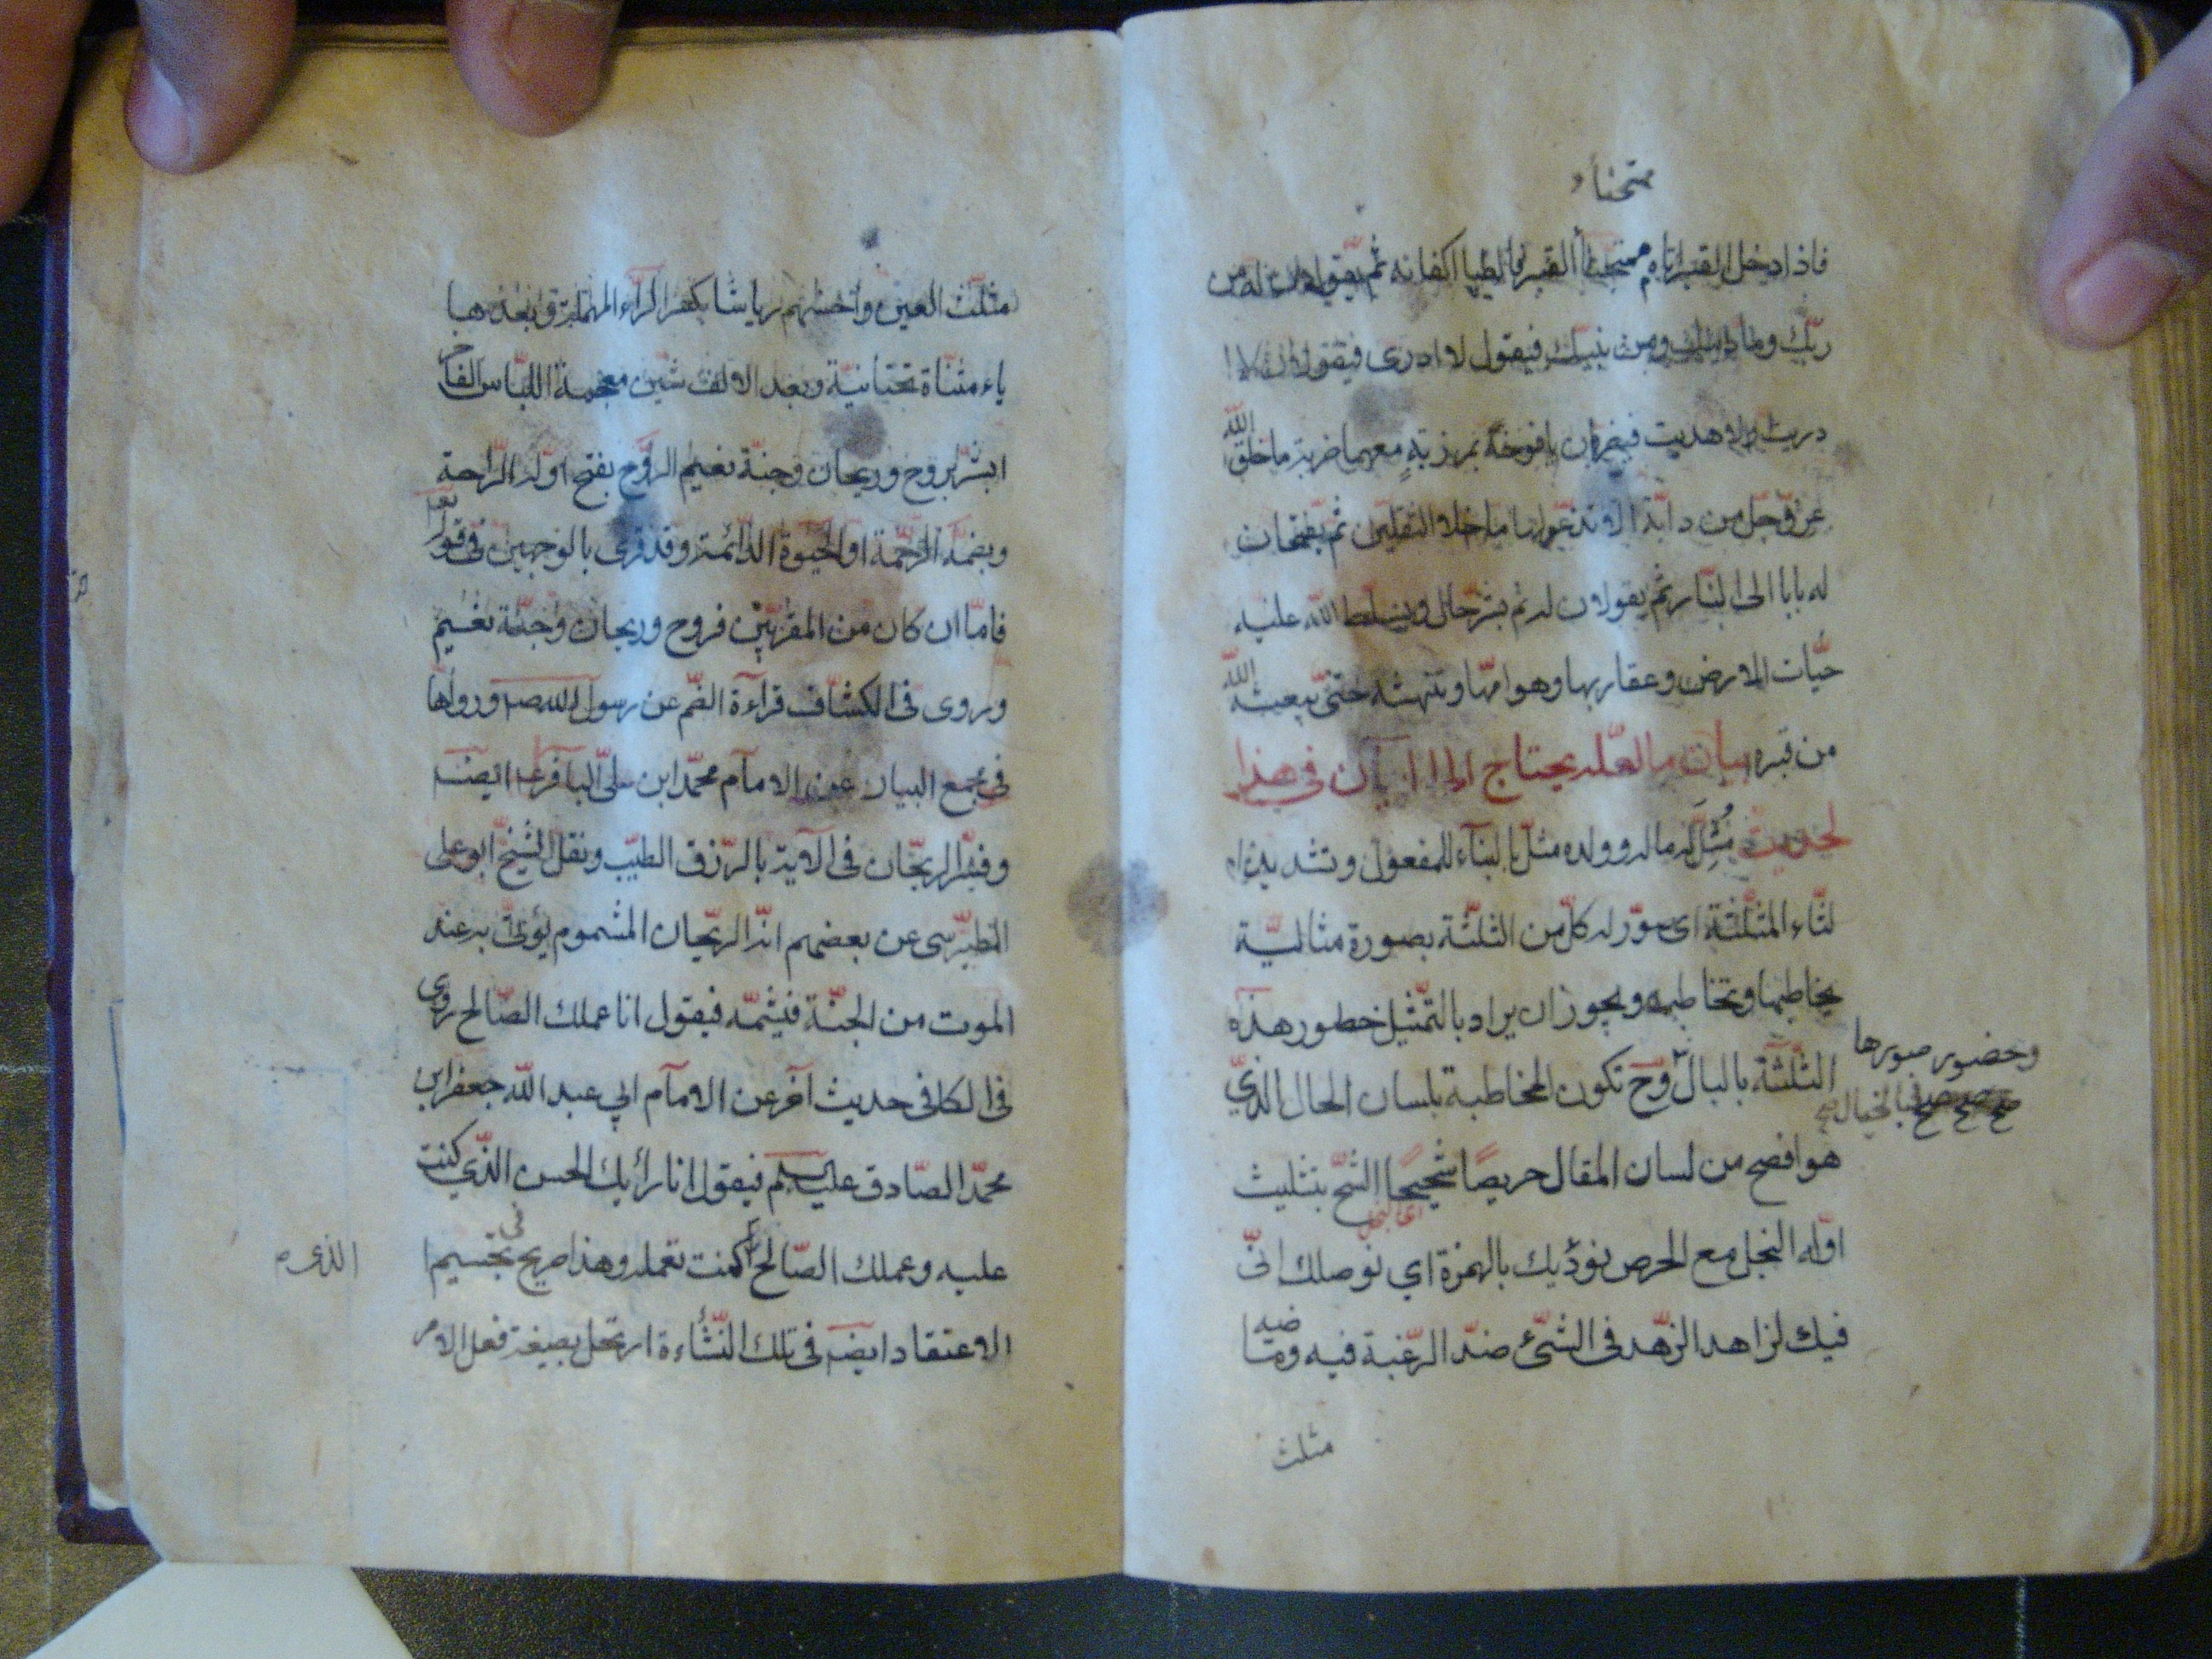 ممتحنا
فاذا دخل القبر اتاه ممتحنا القبر فالطيا اكفانه ثم يقولان له من
ربّك وما دينك ومن نبيّك فيقول لا ادرى فيقولان لا
دريت ولا هديت فيضربان يافوخه بمرزبة معهما ضربة ما خلق الله
عزّ وجلّ من دابّة الا تذعر لها ما خلا الثقلين ثم يفتحان
له بابا الى النّار ثم يقولان له نم بشرّ حال ويسلّط الله عليه
حيّات الارض وعقاربها وهوامّها وتنهشه حتّى يبعثه الله
من قبره بيان ما لعلّه يحتاج الى البيان فى هذا
لحديث مُثِّل له ماله وولده مثّل بالبناء للمفعول وتشديد ا
لثّاء المثلّثة اى صوّر له كلّ من الثلثة بصورة مثاليّة
يخاطبها وتخاطبه ويجوز ان يراد بالتمثيل خطور هذه
الثّلثة بالبال وح تكون المخاطبة بلسان الحال الذي
وحضور صورها
بالخيال صح
هو افصح من لسان المقال حريصًا شحيحًا الشّح بتثليث
اى البخل
اوّله البخل مع الحرص نؤدّيك بالهمزة اي نوصلك انّى
فيك لزاهد الزّهد فى الشّئ ضدّ الرّغبة فيه وماضيه
مثلث
مثلّث العين واحسنهم رياشا بكسر الرّاء المهملة وبعدها
ياء مثنّاة تحتانيّة وبعد الالف شين معجمة اللّباس الفاخر
ابشر بروح وريحان وجنّة نعيم الرّوح بفتح اوّله الرّاحة
وبضمّه الرّحمة او الحيوة الدّائمة وقد قرى بالوجهين فى قوله تعا
فامّا ان كان من المقرّبين فروح وريحان وجنّة نعيم
وروى فى الكشّاف قراءة الضّم عن رسول الله صم ورواها
فى مجمع البيان عن الامام محمّد ابن على الباقر ع ايضه
وفسّر الريحان فى الآية بالرّزق الطيّب ونقل الشيخ ابو على
الطبرسى عن بعضهم انّ الريحان المشموم يؤتى به عند
الموت من الجنّة فيشمّه فيقول انا عملك الصّالح روى
فى الكافى حديث آخر عن الامام ابي عبد الله جعفر ابن
محمّد الصّادق عليه السلم فيقول انا رأيك الحسن الذّي كنت
عليه وعملك الصّالح كنت تعمله وهذا صريح فى تجسيم ا
الذى
الاعتقاد ايضه فى تلك النّشأة ارتحل بصيغة فعل الامر